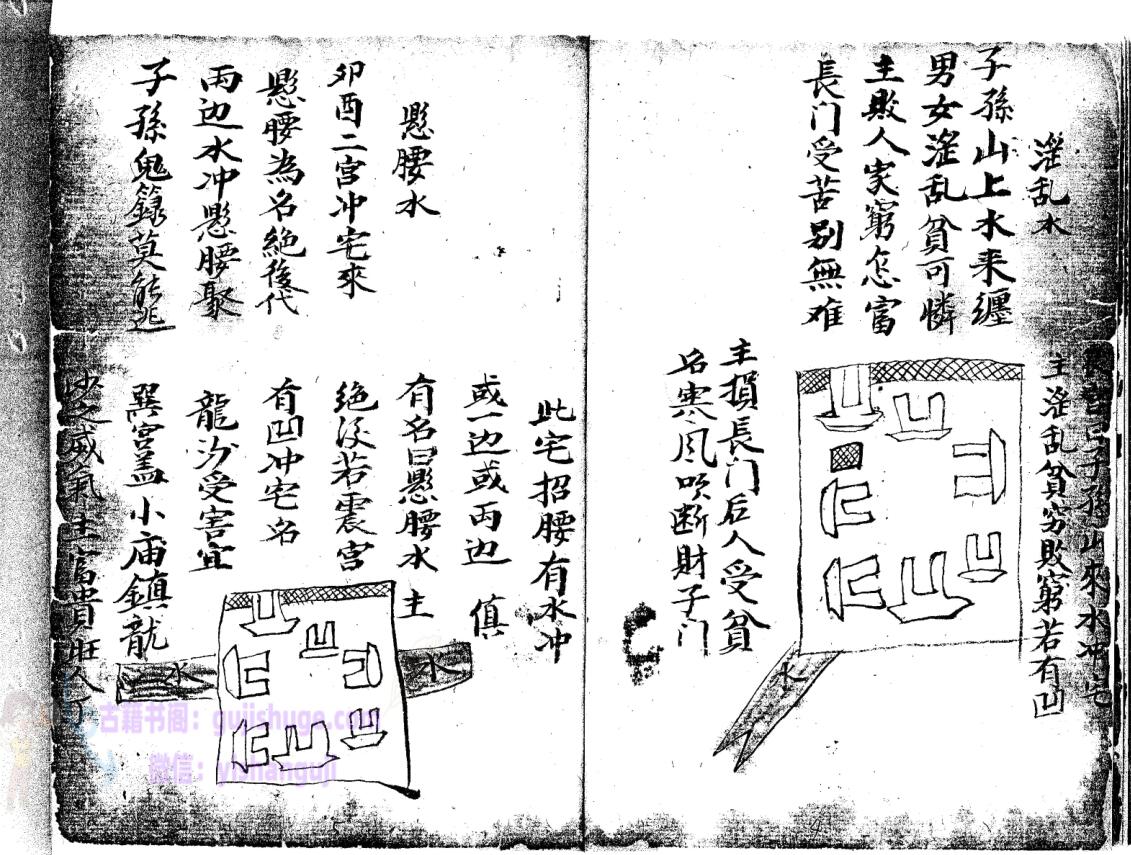 滛乱水
子孫山上水来纒
男女滛乱貧可憐
主敗人家窮怎富
長门受苦别無难
子孫山來水冲宅
主滛乱貧穷敗窮若有凹
主損長门后人受貧
名寒风吹断財子门
水
懸腰水
卯酉二宫冲宅來
懸腰為名絶後代
兩边水冲懸腰聚
子孫鬼籙莫能逃
此宅招腰有水冲
或一边或両边俱
有名曰懸腰水主
绝後若震宫
有凹冲宅名
龍沙受害宜
巽宫盖小庙鎮龍
沙之威氣主富貴旺人丁
水
水
古籍书阁：gujishuge.com
微信：yishanguji